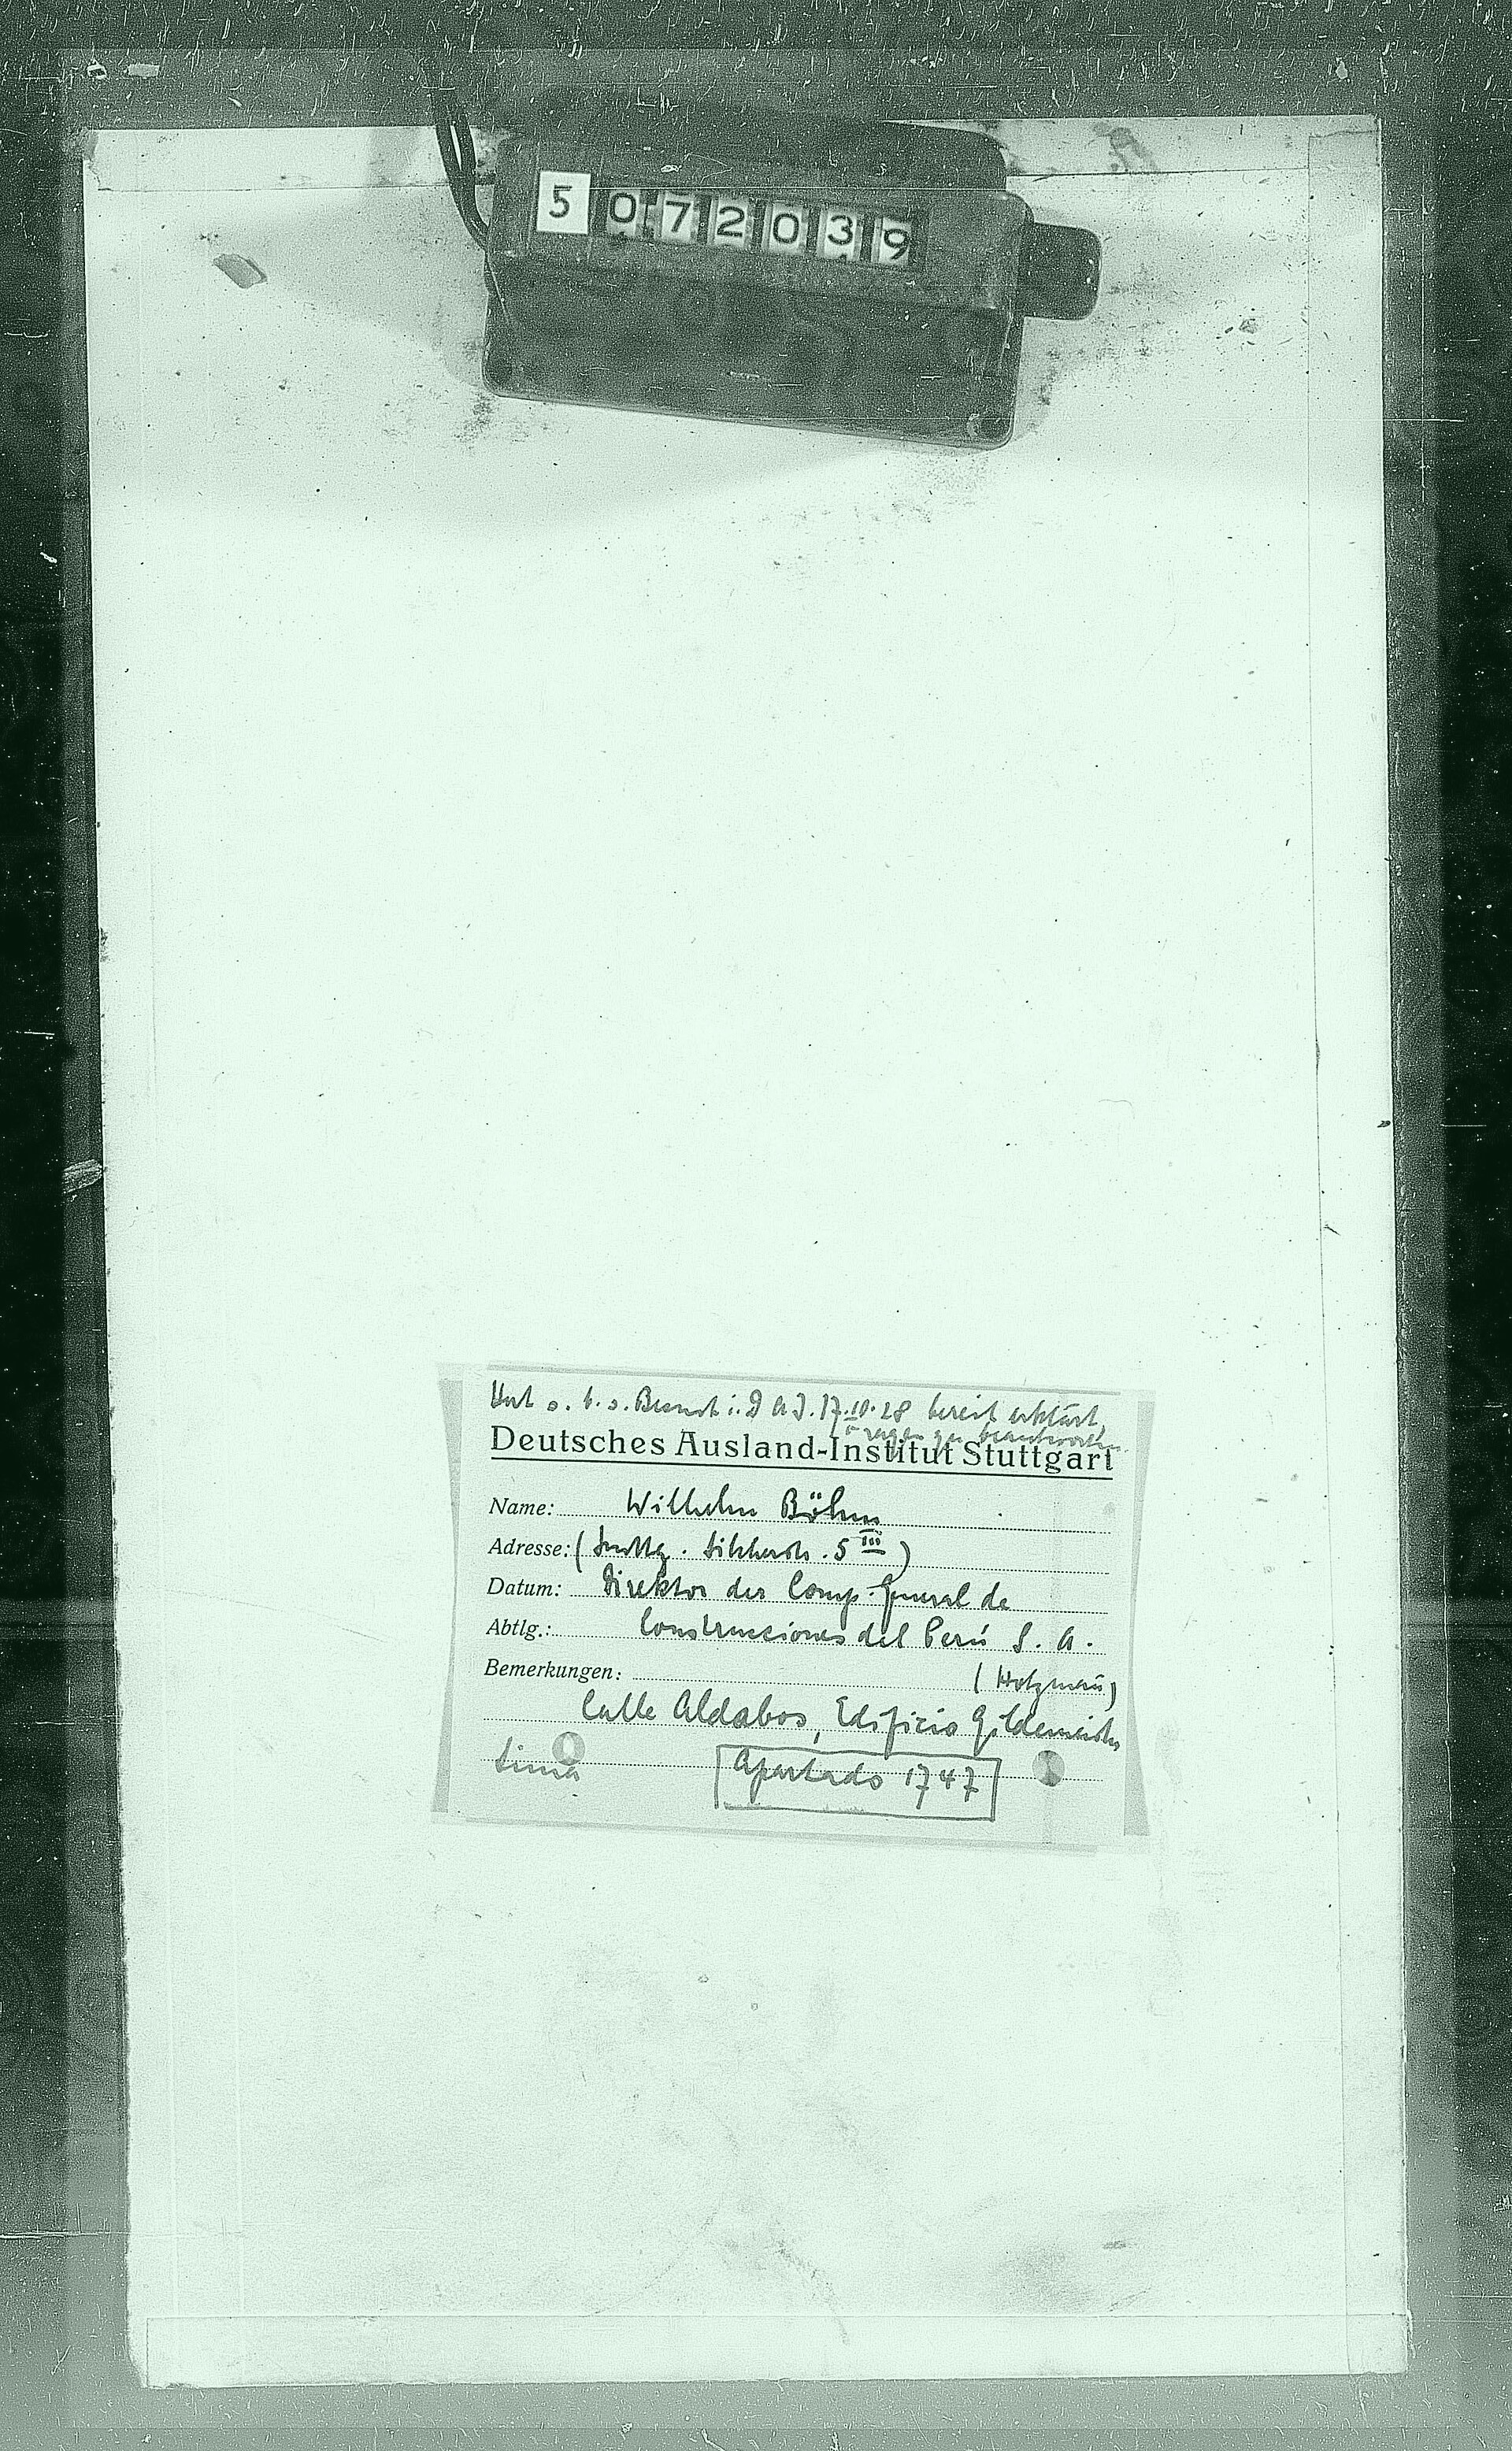 5072039
Hat s. b. s. Besuch i. D A J. 17.10.28 bereit erklärt,
Fragen zu beantworten.
Deutsches Ausland-Institut Stuttgart
Name: Wilhelm Böhm
Adresse: (Stuttg. Silcherstr. 5 III)
Datum: Direktor der Comp. General de
Abtlg.: Construcciones del Perú S. A.
Bemerkungen: (Holzmann)
Calle Aldabas, Edificio Gildemeister
Lima Apartado 1747